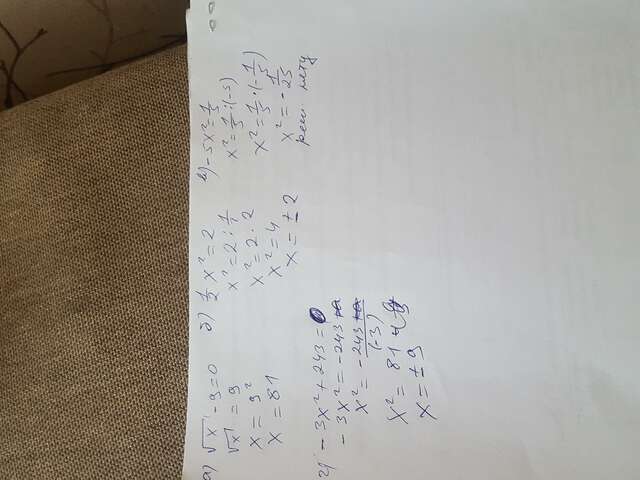 а) √x - 9 = 0
√x = 9
x = 9²
x = 81
б) 1/2 x² = 2
x² = 2 : 1/2
x² = 2 · 2
x² = 4
x = ± 2
в) -5x² = 1/5
x² = 1/5 : (-5)
x² = 1/5 · (-1/5)
x² = -1/25
реш. нету
г) -3x² + 243 = 0
-3x² = -243
x² = -243/(-3)
x² = 81
x = ± 9